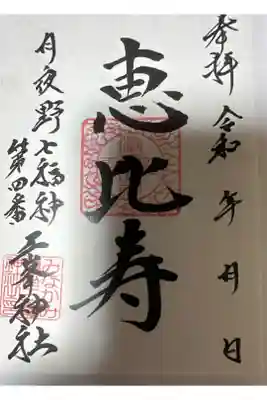 奉拝 令和 年 月 日
恵比寿
月夜野七福神
第四番 三峯神社